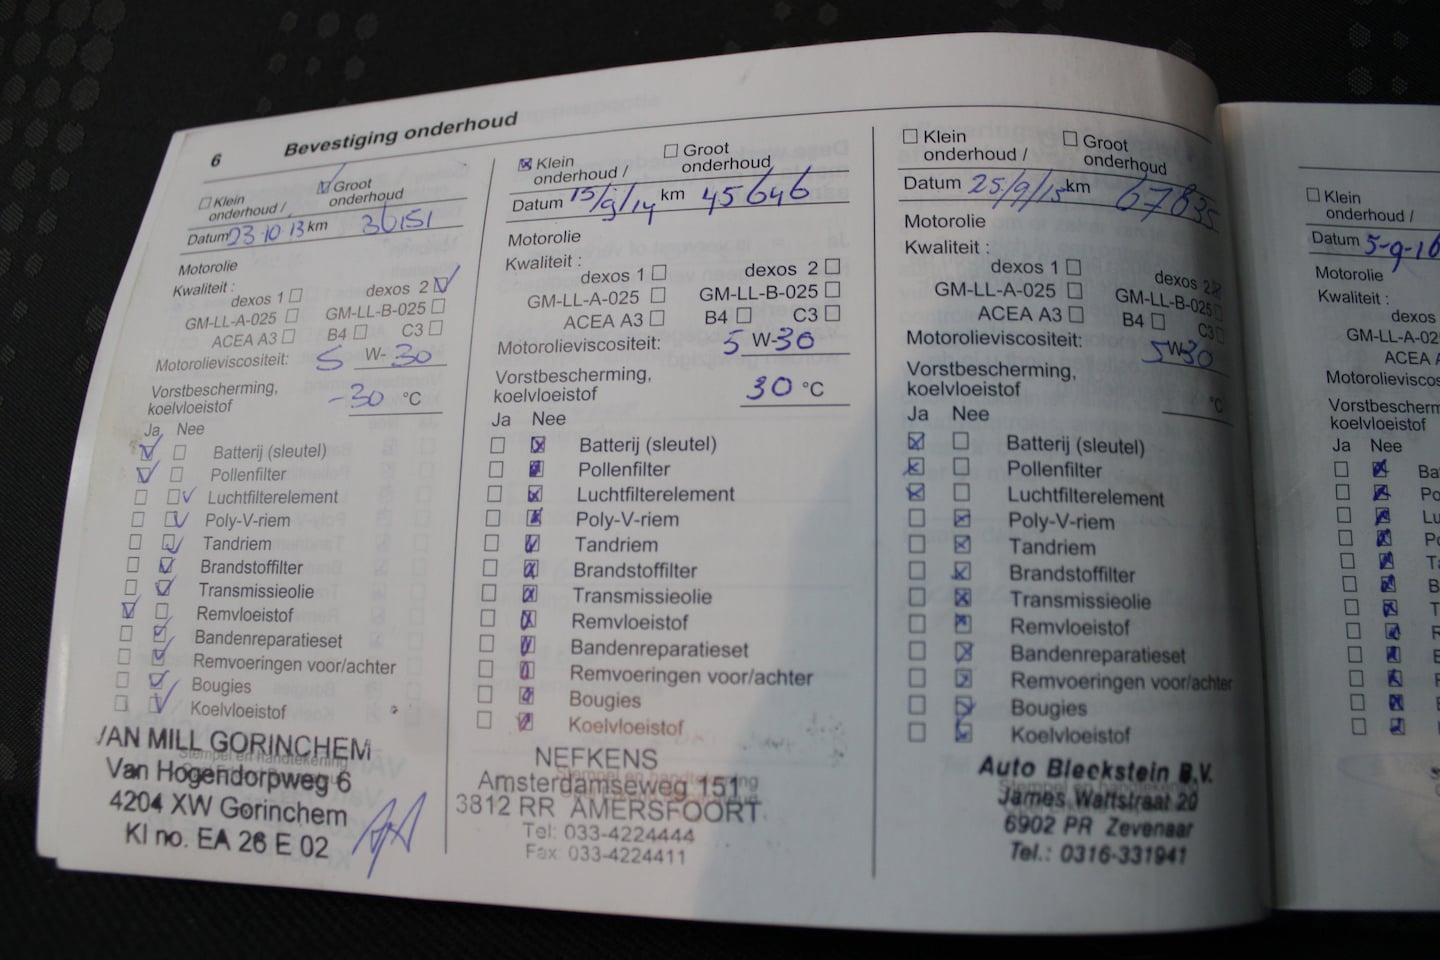 6 Bevestiging onderhoud
Klein onderhoud /
Groot onderhoud
Datum 23-10-13 km 36151
Motorolie
Kwaliteit :
dexos 1 dexos 2
GM-LL-A-025 GM-LL-B-025
ACEA A3 B4 C3
Motorolieviscositeit: 5 W- 30
Vorstbescherming,
koelvloeistof -30 °C
Ja Nee
Batterij (sleutel)
Pollenfilter
Luchtfilterelement
Poly-V-riem
Tandriem
Brandstoffilter
Transmissieolie
Remvloeistof
Bandenreparatieset
Remvoeringen voor/achter
Bougies
Koelvloeistof
Stempel en handtekening
VAN MILL GORINCHEM
Van Hogendorpweg 6
4204 XW Gorinchem
KI no. EA 26 E 02
Klein onderhoud /
Groot onderhoud
Datum 15/9/14 km 45646
Motorolie
Kwaliteit :
dexos 1 dexos 2
GM-LL-A-025 GM-LL-B-025
ACEA A3 B4 C3
Motorolieviscositeit: 5 W-30
Vorstbescherming,
koelvloeistof 30 °C
Ja Nee
Batterij (sleutel)
Pollenfilter
Luchtfilterelement
Poly-V-riem
Tandriem
Brandstoffilter
Transmissieolie
Remvloeistof
Bandenreparatieset
Remvoeringen voor/achter
Bougies
Koelvloeistof
Stempel en handtekening
NEFKENS
Amsterdamseweg 151
3812 RR AMERSFOORT
Tel: 033-4224444
Fax: 033-4224411
Klein onderhoud /
Groot onderhoud
Datum 25/9/15 km 67835
Motorolie
Kwaliteit :
dexos 1 dexos 2
GM-LL-A-025 GM-LL-B-025
ACEA A3 B4 C3
Motorolieviscositeit: 5 W-30
Vorstbescherming,
koelvloeistof °C
Ja Nee
Batterij (sleutel)
Pollenfilter
Luchtfilterelement
Poly-V-riem
Tandriem
Brandstoffilter
Transmissieolie
Remvloeistof
Bandenreparatieset
Remvoeringen voor/achter
Bougies
Koelvloeistof
Auto Bleckstein B.V.
James Wattstraat 20
6902 PR Zevenaar
Tel.: 0316-331941
Klein
onderhoud /
Datum 5-9-16
Motorolie
Kwaliteit :
dexos
GM-LL-A-02
ACEA A
Motorolieviscos
Vorstbescherm
koelvloeistof
Ja Nee